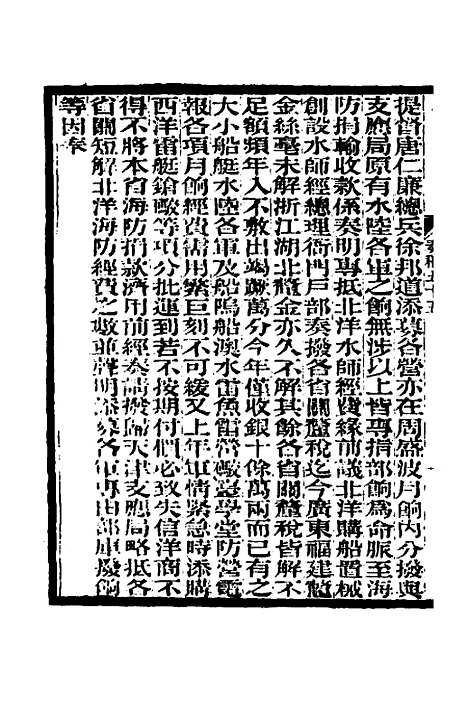 提督唐仁廉總兵徐邦道添募各營亦在周盛波月餉內分撥與
支應局原有水陸各軍之餉無涉以上皆專指部餉為命脈至海
防捐輸收款係奏明專抵北洋水師經費緣前議北洋購船置械
創設水師經總理衙門戶部奏撥各省關釐稅迄今廣東福建釐
金絲毫未解浙江湖北釐金亦久不解其餘各省關釐稅皆解不
足額頻年入不敷出竭蹶萬分今年僅收銀十餘萬兩而已有之
大小船艇水陸各軍及船隖船澳水雷魚雷營礮臺學堂防營電
報各項月餉經費需用繁巨刻不可緩又上年軍情緊急時添購
西洋雷艇鎗礮等項分批運到若不按期付價必致失信洋商不
得不將本省海防捐款濟用前經奏請撥歸天津支應局略抵各
省關短解北洋海防經費之數並聲明添募各軍專由部庫撥餉
等因奉